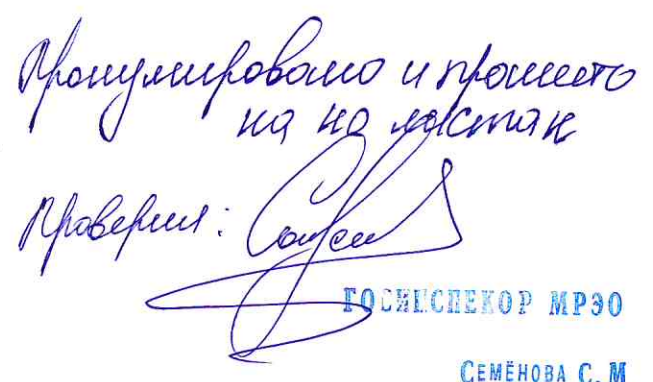 Пронумеровано и прошито
на на листах
Проверил:
ГОСИНСПЕКОР МРЭО
СЕМЁНОВА С. М